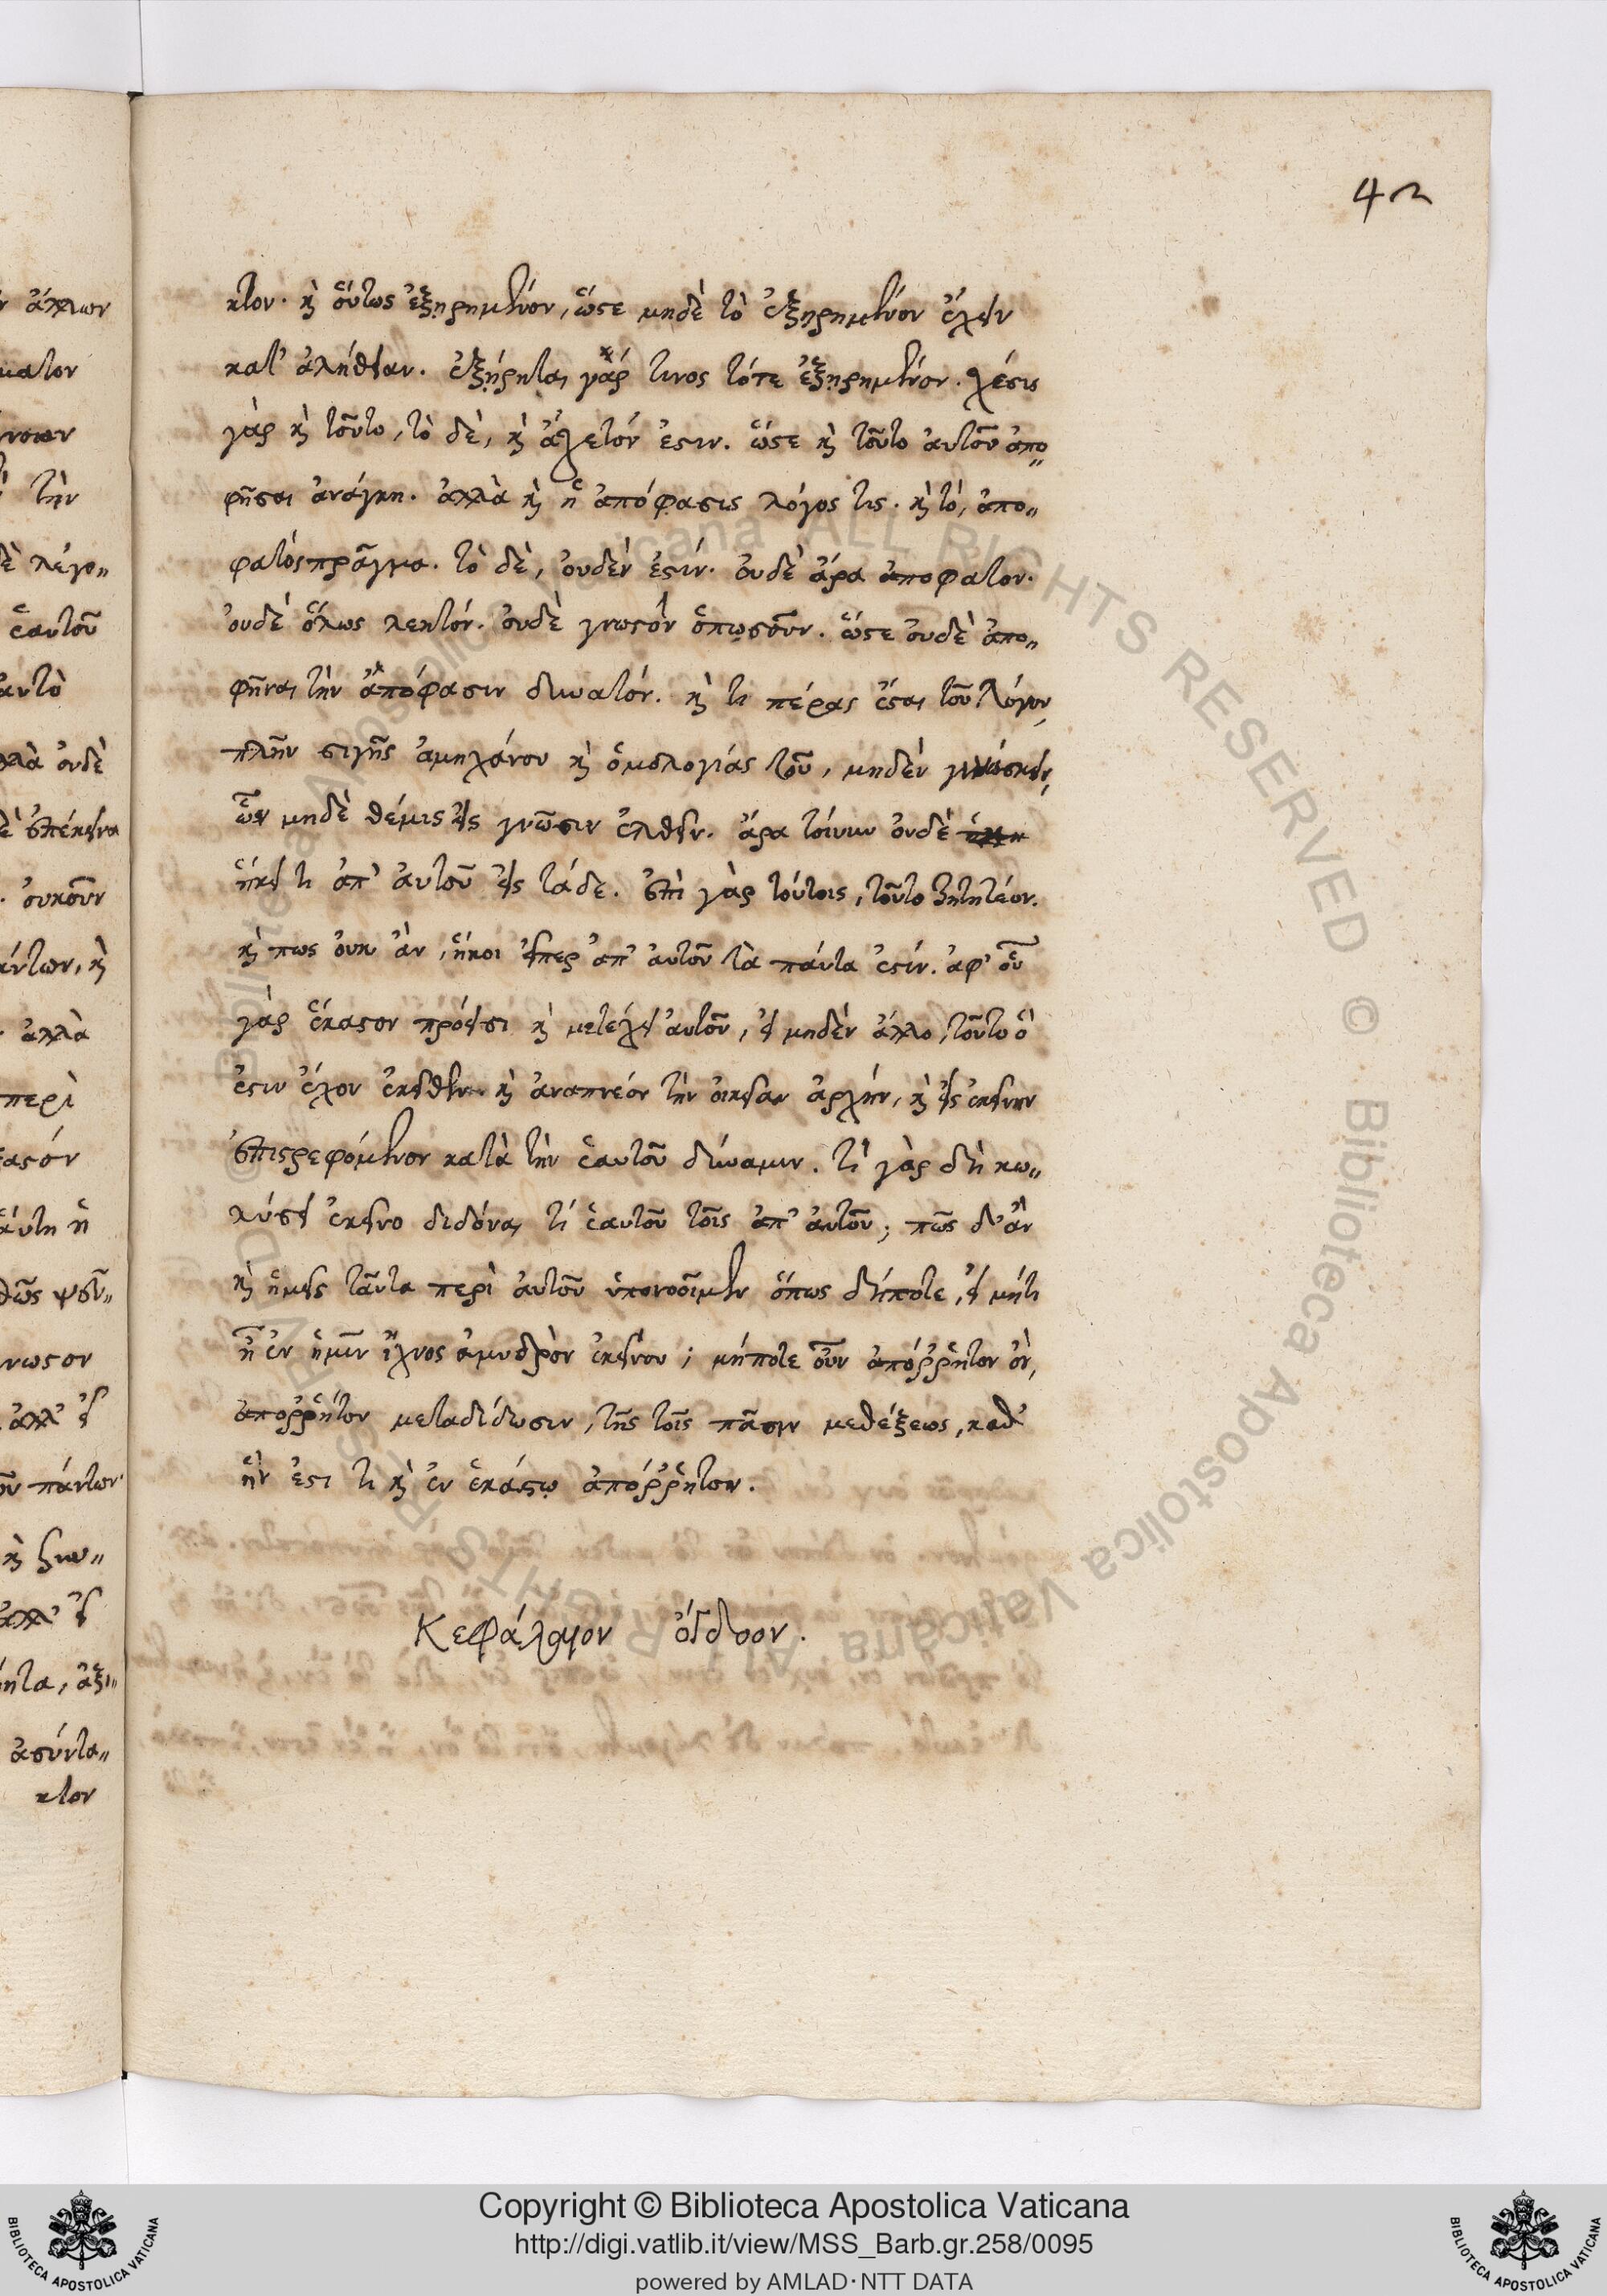 42
κτον. κὶ οὕτως ἐξῃρημένον, ὥστε μηδὲ τὸ ἐξῃρημένον ἔχειν
κατ' ἀλήθειαν. ἐξῄρηται γάρ τινος τότε ἐξῃρημένον. χέσις
γὰρ κὶ τοῦτο, τὸ δὲ, κὶ ἄχετόν ἐστιν. ὥστε κὶ τοῦτο αὐτοῦ ἀπο„
φῆσαι ἀνάγκη. ἀλλὰ κὶ ἡ ἀπόφασις λόγος τις. κὶ τὸ, ἀπο„
φατὸς πρᾶγμα. τὸ δὲ, οὐδέν ἐστίν. οὐδὲ ἄρα ἀποφατον.
οὐδὲ ὅλως λεκτόν. οὐδὲ γνωστὸν ὁπωσοῦν. ὥστε οὐδὲ ἀπο„
φῆναι τὴν ἀπόφασιν δυνατόν. κὶ τι πέρας ἔσται τοῦ λόγου,
πλὴν σιγῆς ἀμηχάνου κὶ ὁμολογίας τοῦ, μηδὲν γινώσκειν,
ὧν μηδὲ θέμις εἰς γνῶσιν ἐλθεῖν. ἄρα τοίνυν οὐδὲ
ἥκει τι ἀπ' αὐτοῦ εἰς τάδε. ἐπὶ γὰρ τούτοις, τοῦτο ζητητέον.
κὶ πως οὐκ ἂν, ἥκοι εἴπερ ἀπ' αὐτοῦ τὰ πάντα ἐστίν. ἀφ' οὗ
γὰρ ἕκαστον πρόεισι κὶ μετέχει αὐτοῦ, εἰ μηδὲν ἄλλο, τοῦτο ὅ
ἐστιν ἔχον ἐκεῖθεν κὶ ἀναπνέον τὴν οἰκείαν ἀρχήν, κὶ εἰς ἐκείνην
ἐπιστρεφόμενον κατὰ τὴν ἑαυτοῦ δύναμιν. τί γὰρ δὴ κω„
λύσει ἐκεῖνο διδόναι τί ἑαυτοῦ τοῖς ἀπ' αὐτοῦ; πῶς δ' ἂν
κὶ ἡμεῖς ταῦτα περὶ αὐτοῦ ὑπονοοῖμεν ὅπως δήποτε, εἰ μήτι
ἦ ἐν ἡμῖν ἴχνος ἀμυδρὸν ἐκείνου; μήποτε οὖν ἀπόῤῥητον ὂν,
ἀποῤῥήτον μεταδίδωσιν, τῆς τοῖς πᾶσιν μεθέξεως, καθ'
ἣν ἔστι τι κὶ ἐν ἑκάστῳ ἀπόῤῥητον.
Κεφάλαιον ὄγδοον.
Copyright © Biblioteca Apostolica Vaticana
http://digi.vatlib.it/view/MSS_Barb.gr.258/0095
powered by AMLAD·NTT DATA